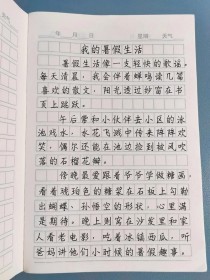 年 月 日 星期 天气
我的暑假生活
暑假生活像一支轻快的歌谣。
每天清晨,我会伴着蝉鸣读几篇
喜欢的散文,阳光透过纱窗在书
页上跳跃。
午后常和小伙伴去小区的泳
池戏水,水花飞溅中传来阵阵欢
笑,偶尔还能在池边捡到被风吹
落的石榴花瓣。
傍晚最爱跟着爷爷学做糖画,
看着琥珀色的糖浆在石板上勾勒
出蝴蝶、孙悟空的形状,心里满
是期待。晚上则窝在沙发里和家
人看老电影,吃着冰镇西瓜,听
爸妈讲他们小时候的暑假趣事。